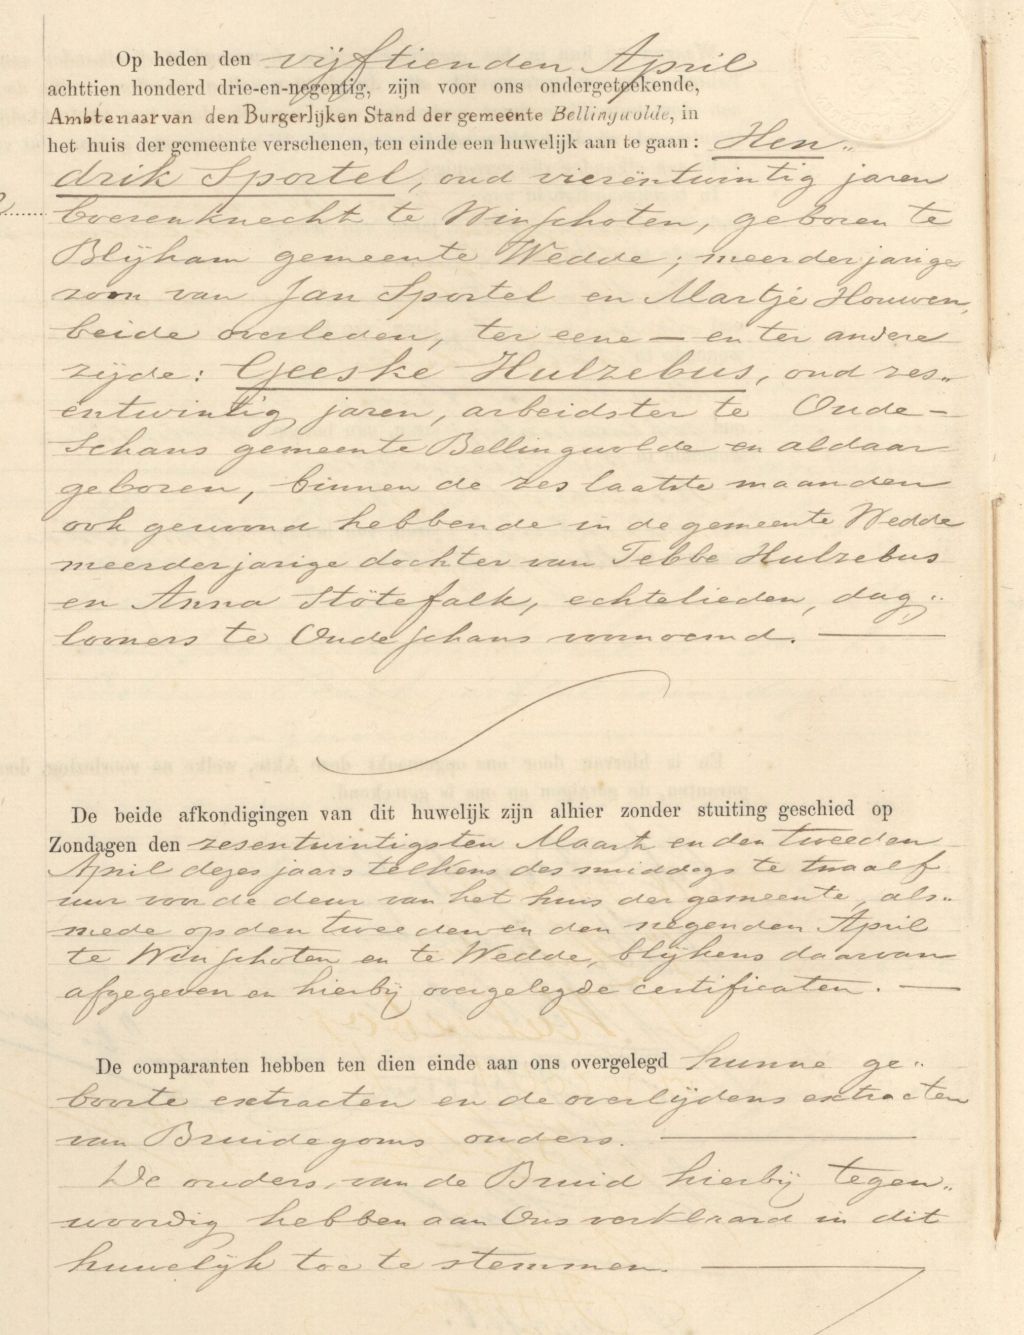 Op heden den vijftienden April
achttien honderd drie-en-negentig, zijn voor ons ondergeteekende,
Ambtenaar van den Burgerlijken Stand der gemeente Bellingwolde, in
het huis der gemeente verschenen, ten einde een huwelijk aan te gaan: Hen„
drik Sportel, oud vierëntwintig jaren
boerenknecht te Winschoten, geboren te
Blijham gemeente Wedde; meerderjarige
zoon van Jan Sportel en Martje Houwen,
beide overleden, ter eene — en ter andere
zijde: Geeske Hulzebus, oud zes„
entwintig jaren, arbeidster te Oude-
Schans gemeente Bellingwolde en aldaar
geboren, binnen de zes laatste maanden
ook gewoond hebbende in de gemeente Wedde
meerderjarige dochter van Tebbe Hulzebus
en Anna Stötefalk, echtelieden, dag„
looners te Oudeschans voornoemd. —
De beide afkondigingen van dit huwelijk zijn alhier zonder stuiting geschied op
Zondagen den zesentwintigsten Maart en den tweeden
April dezes jaars telkens des middags te twaalf
uur voor de deur van het huis der gemeente, als„
mede op den tweeden en den negenden April
te Winschoten en te Wedde, blijkens daarvan
afgegeven en hierbij overgelegde certificaten. —
De comparanten hebben ten dien einde aan ons overgelegd hunne ge„
boorte extracten en de overlijdens extracten
van Bruidegoms ouders. —
De ouders van de Bruid hierbij tegen„
woordig hebben aan Ons verklaard in dit
huwelijk toe te stemmen. —